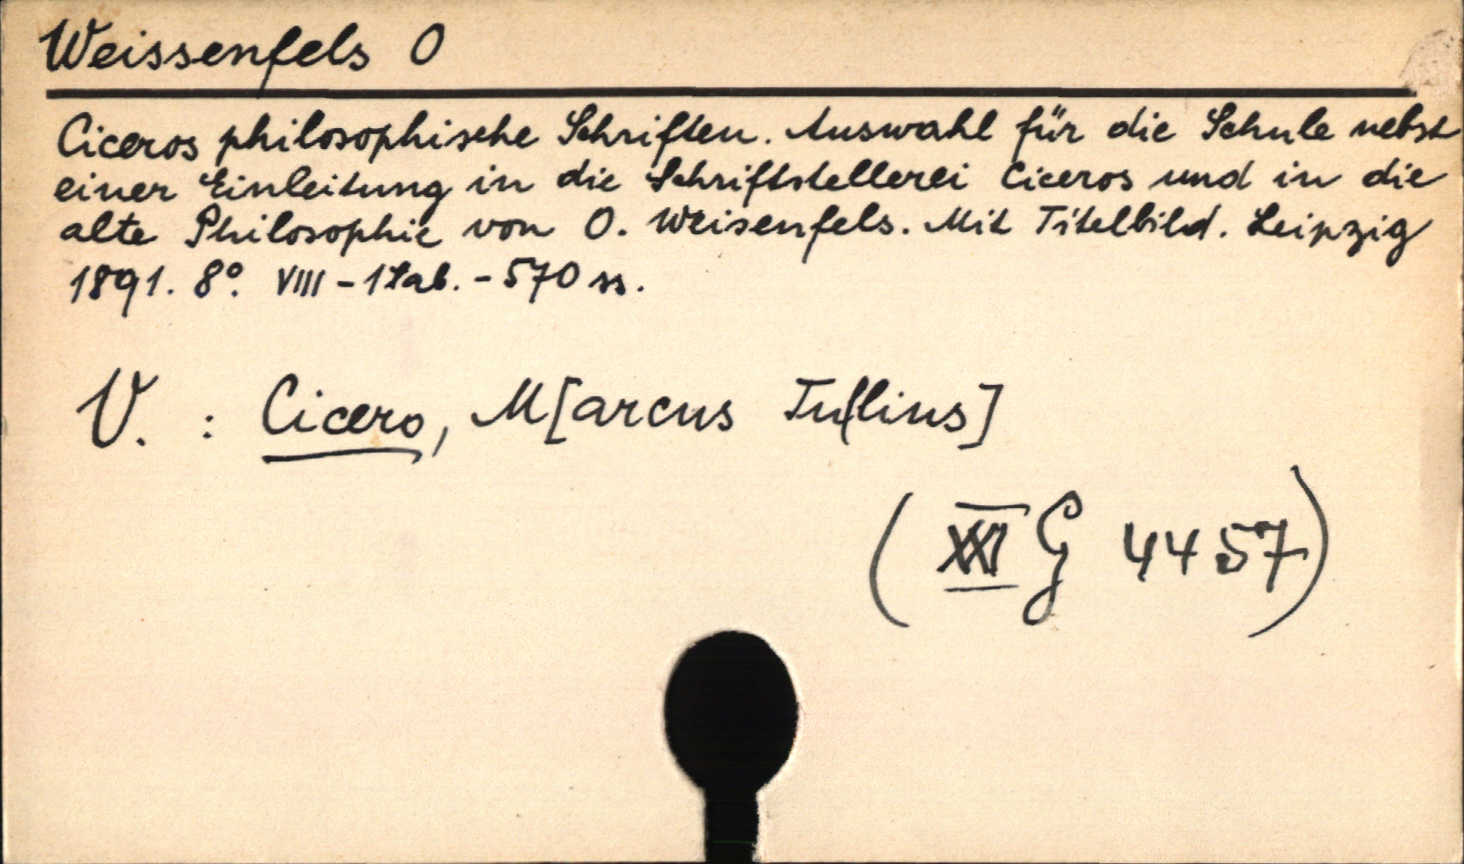 Weissenfels O
Ciceros philosophische Schriften. Auswahl für die Schule nebst
einer Einleitung in die Schriftstellerei Ciceros und in die
alte Philosophie von O. Weisenfels. Mit Titelbild. Leipzig
1891. 8º. VIII - 1 tab. - 570 ss.
V. : Cicero, M[arcus Tullius]
( XXI G 4457 )